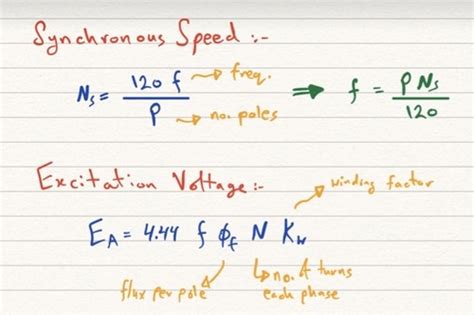 Synchronous Speed :-
Ns = 120 f / P → freq. → no. poles ⇒ f = P Ns / 120
Excitation Voltage :-
winding factor
EA = 4.44 f ϕf N Kw
flux per pole
no. of turns
each phase